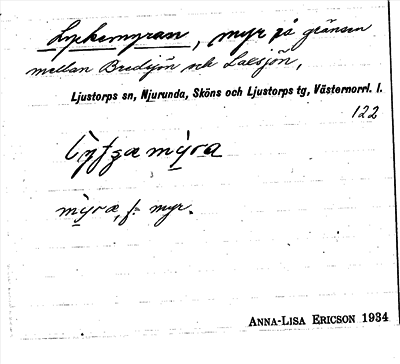 Lyckemyran, myr på gränsen
mellan Bredsjön och Laxsjön,
Ljustorps sn, Njurunda, Sköns och Ljustorps tg, Västernorrl. l.
122
mỳra
mỳra, f. myr.
ANNA-LISA ERICSON 1934